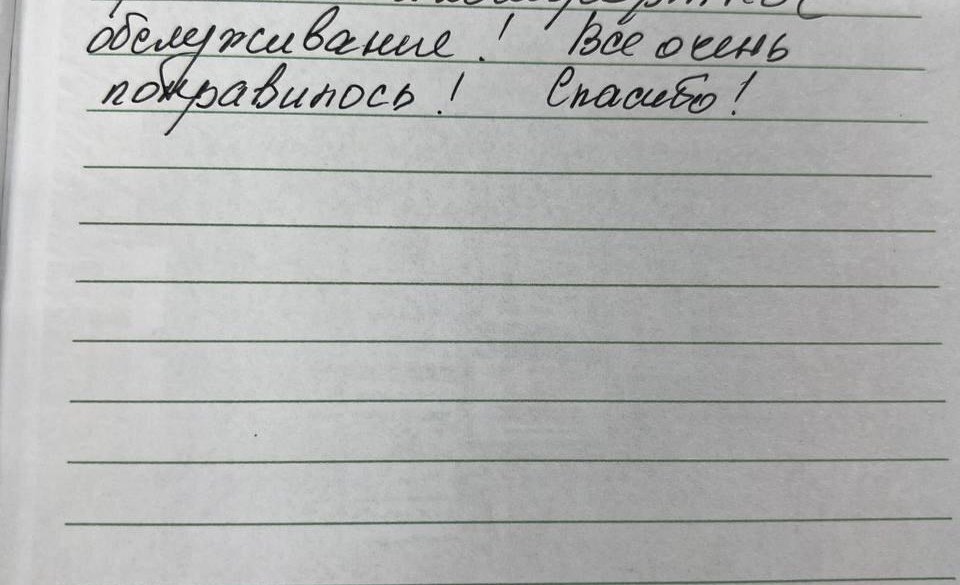 обслуживание! Все очень
понравилось! Спасибо!